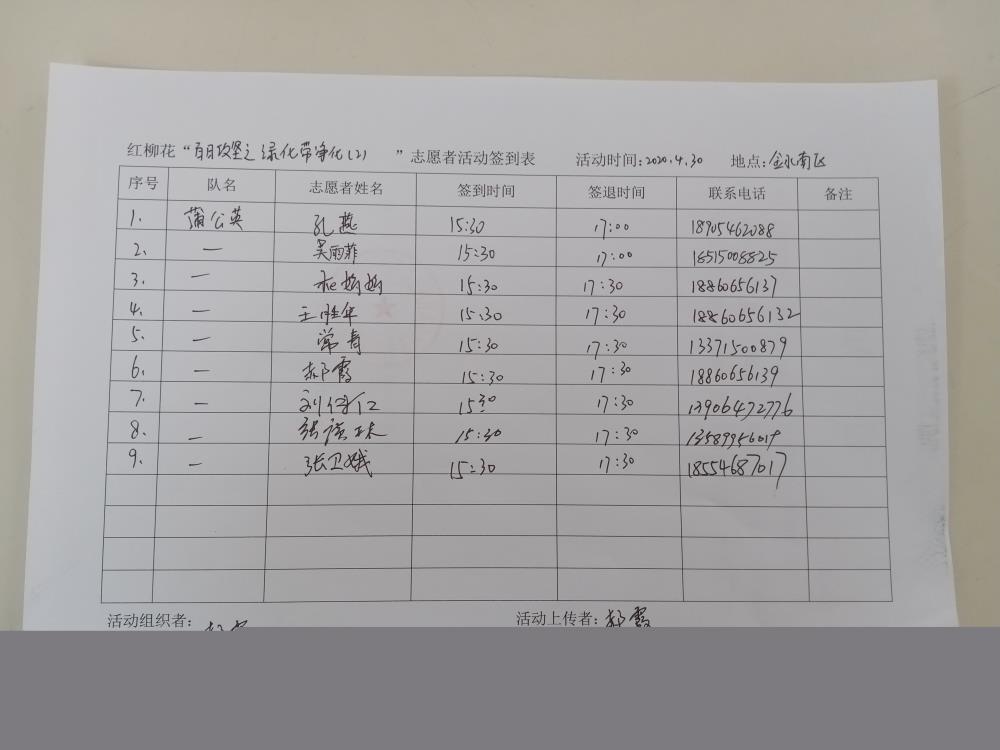 红柳花“百日攻坚之绿化带净化(2)”志愿者活动签到表 活动时间:2020.4.30 地点:金水南区
序号 队名 志愿者姓名 签到时间 签退时间 联系电话 备注
1. 蒲公英 孔燕 15:30 17:00 18905462088
2. — 吴雨菲 15:30 17:00 18515008825
3. — 15:30 17:30 18860656137
4. — 王胜军 15:30 17:30 18860656132
5. — 常青 15:30 17:30 13371500879
6. — 郝霞 15:30 17:30 18860656139
7. — 15:30 17:30 13906472776
8. — 15:30 17:30 13589956019
9. — 张卫娥 15:30 17:30 18554687017
活动组织者: 活动上传者:郝霞